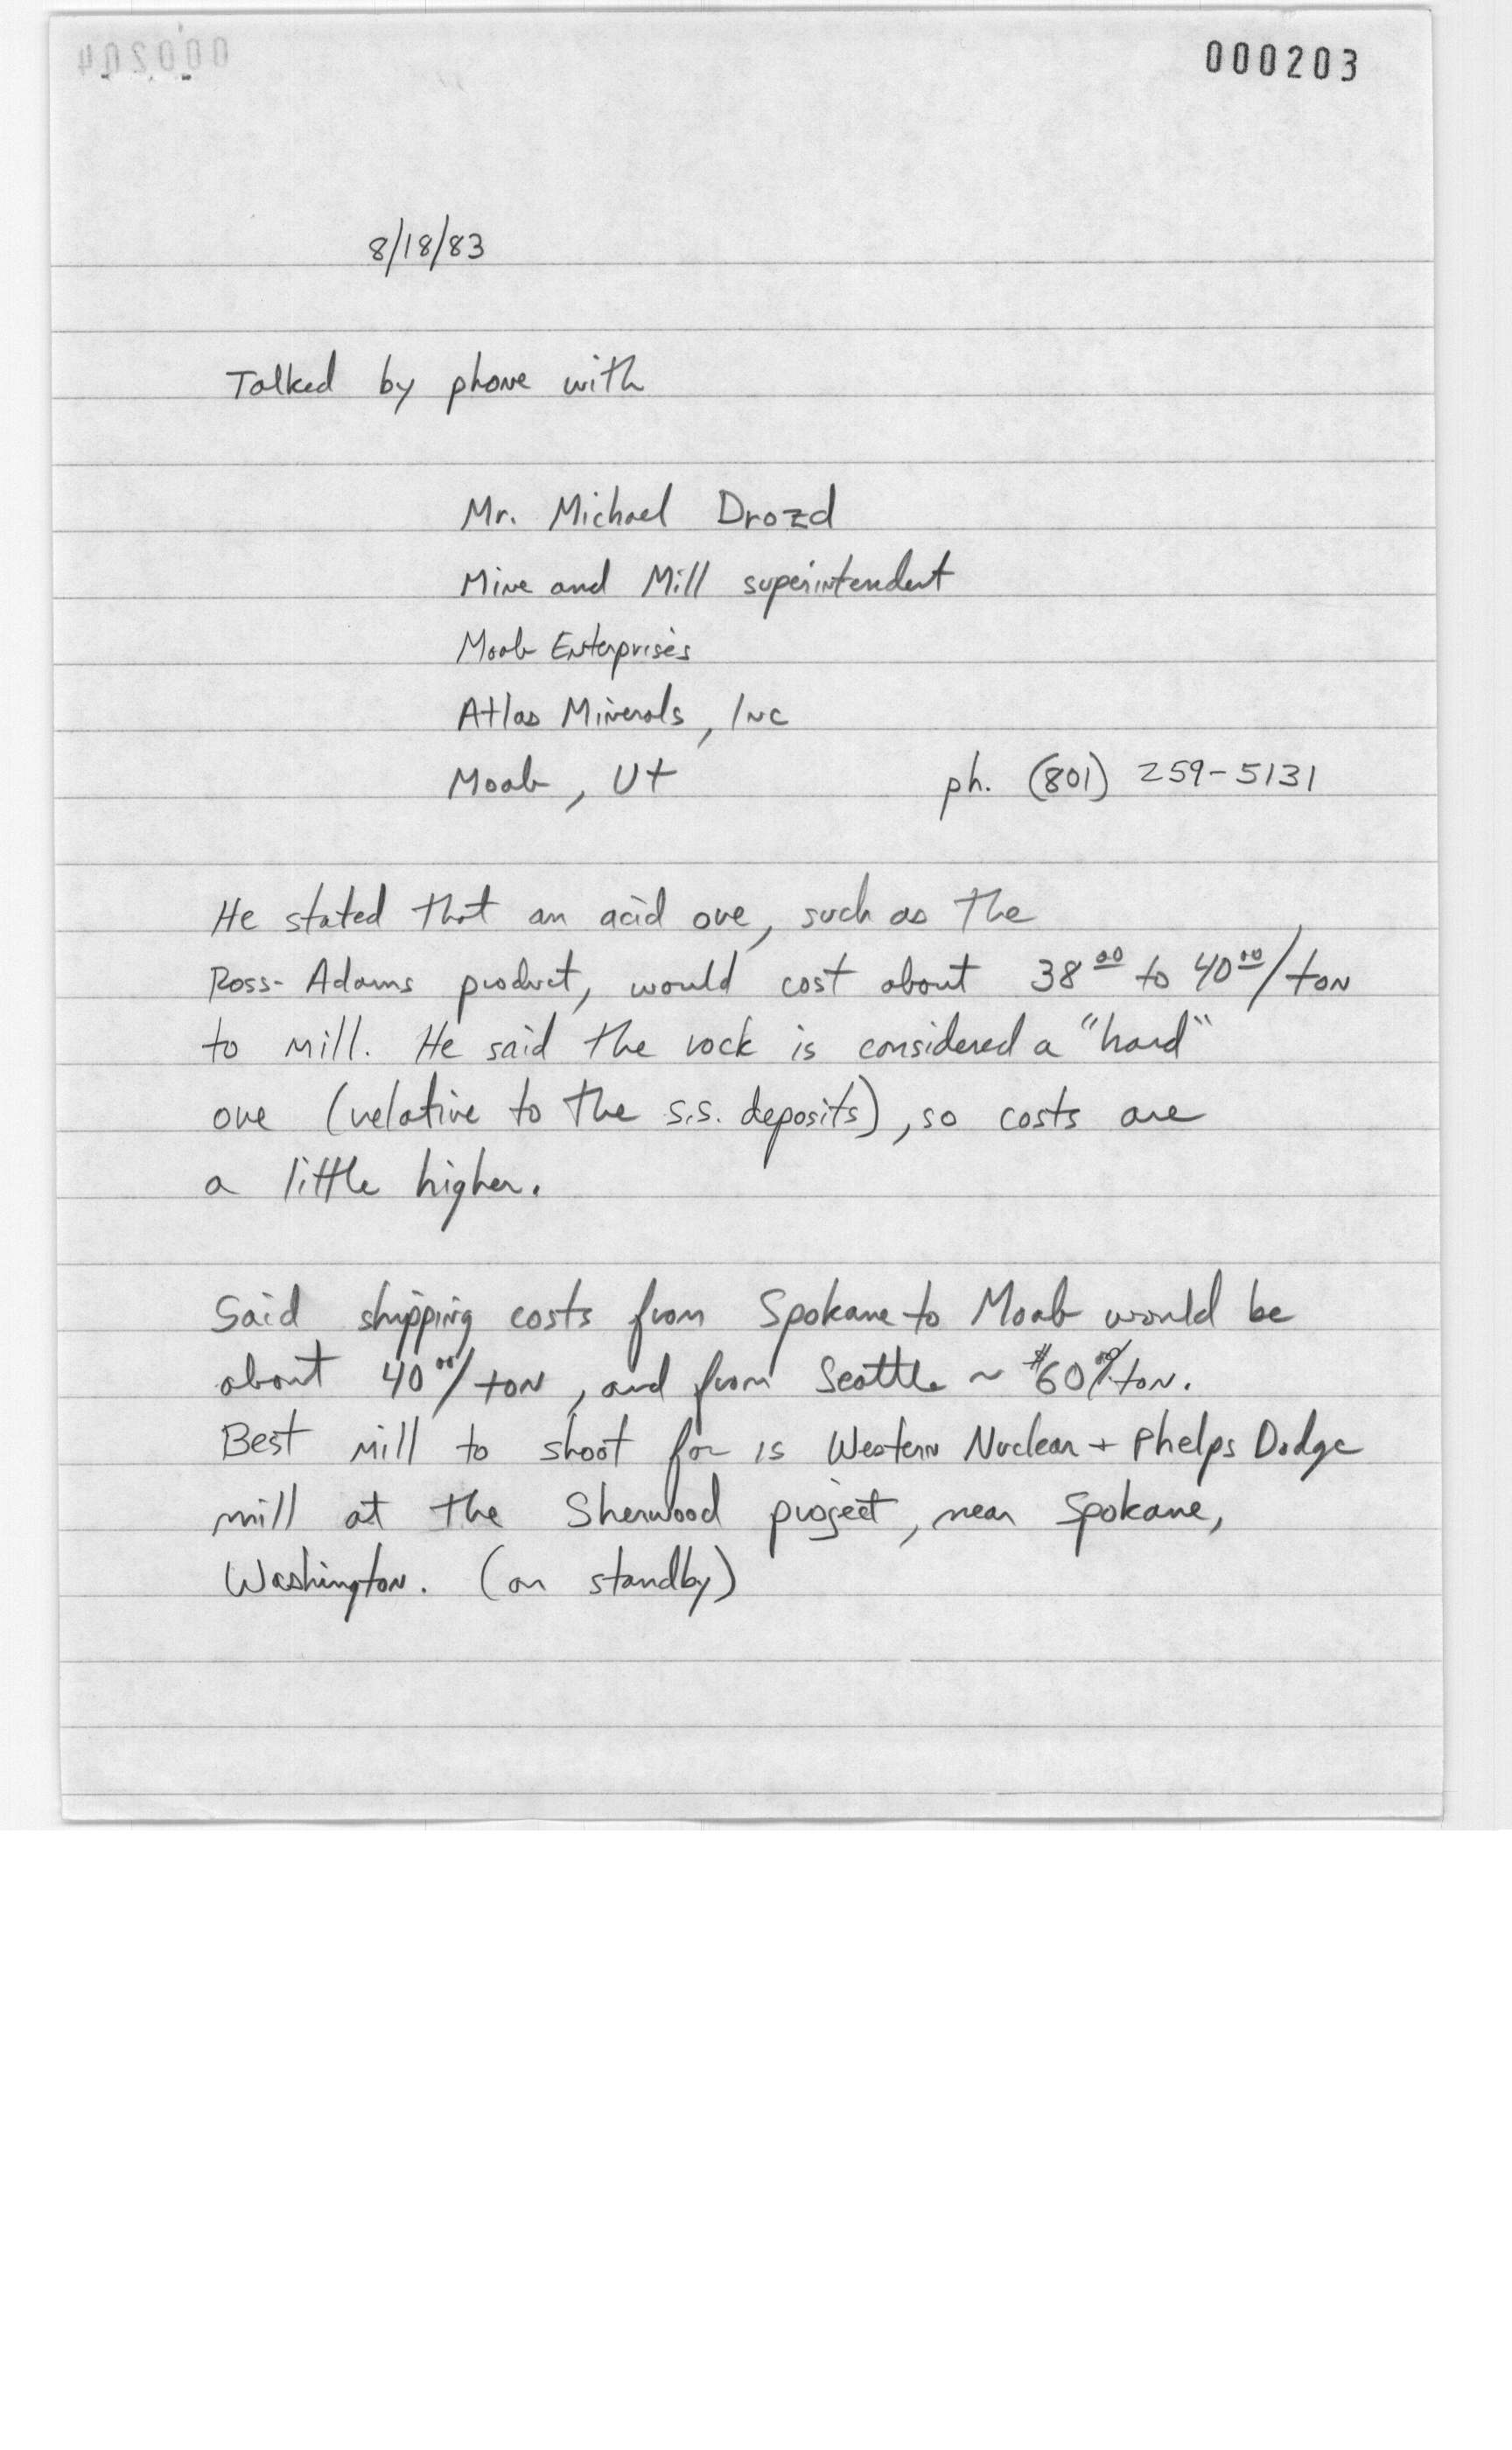 000203
8/18/83
Talked by phone with
Mr. Michael Drozd
Mine and Mill superintendent
Moab Enterprises
Atlas Minerals, Inc
Moab, Ut ph. (801) 259-5131
He stated that an acid ore, such as the
Ross-Adams product, would cost about 38.00 to 40.00/ton
to mill. He said the rock is considered a "hard"
ore (relative to the s.s. deposits), so costs are
a little higher.
Said shipping costs from Spokane to Moab would be
about 40.00/ton, and from Seattle ~ $60.00/ton.
Best mill to shoot for is Western Nuclear + Phelps Dodge
mill at the Sherwood project, near Spokane,
Washington. (on standby)